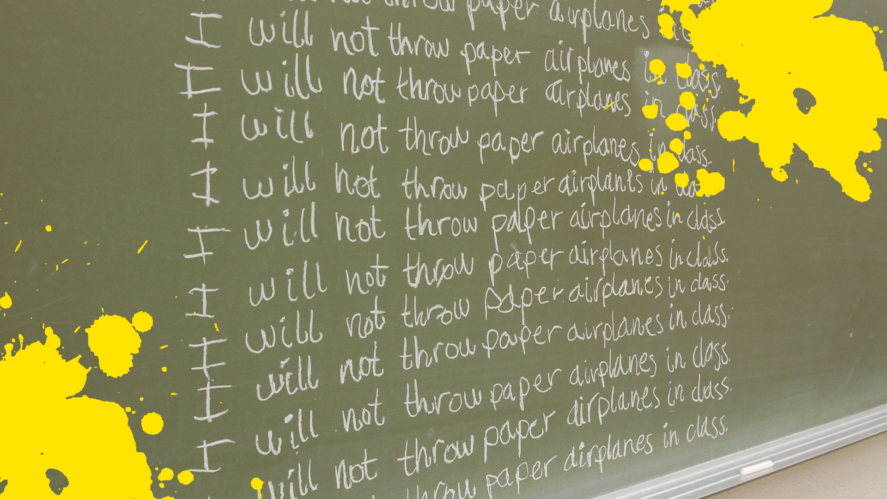 not throw paper airplanes
I will not throw paper airplanes in class.
I will not throw paper airplanes in class.
I will not throw paper airplanes in class.
I will not throw paper airplanes in
I will not throw paper airplanes in class.
I will not throw paper airplanes in class.
I will not throw paper airplanes in class.
I will not throw paper airplanes in class.
I will not throw paper airplanes in class.
will not throw paper airplanes in class.
throw paper airplanes in class.